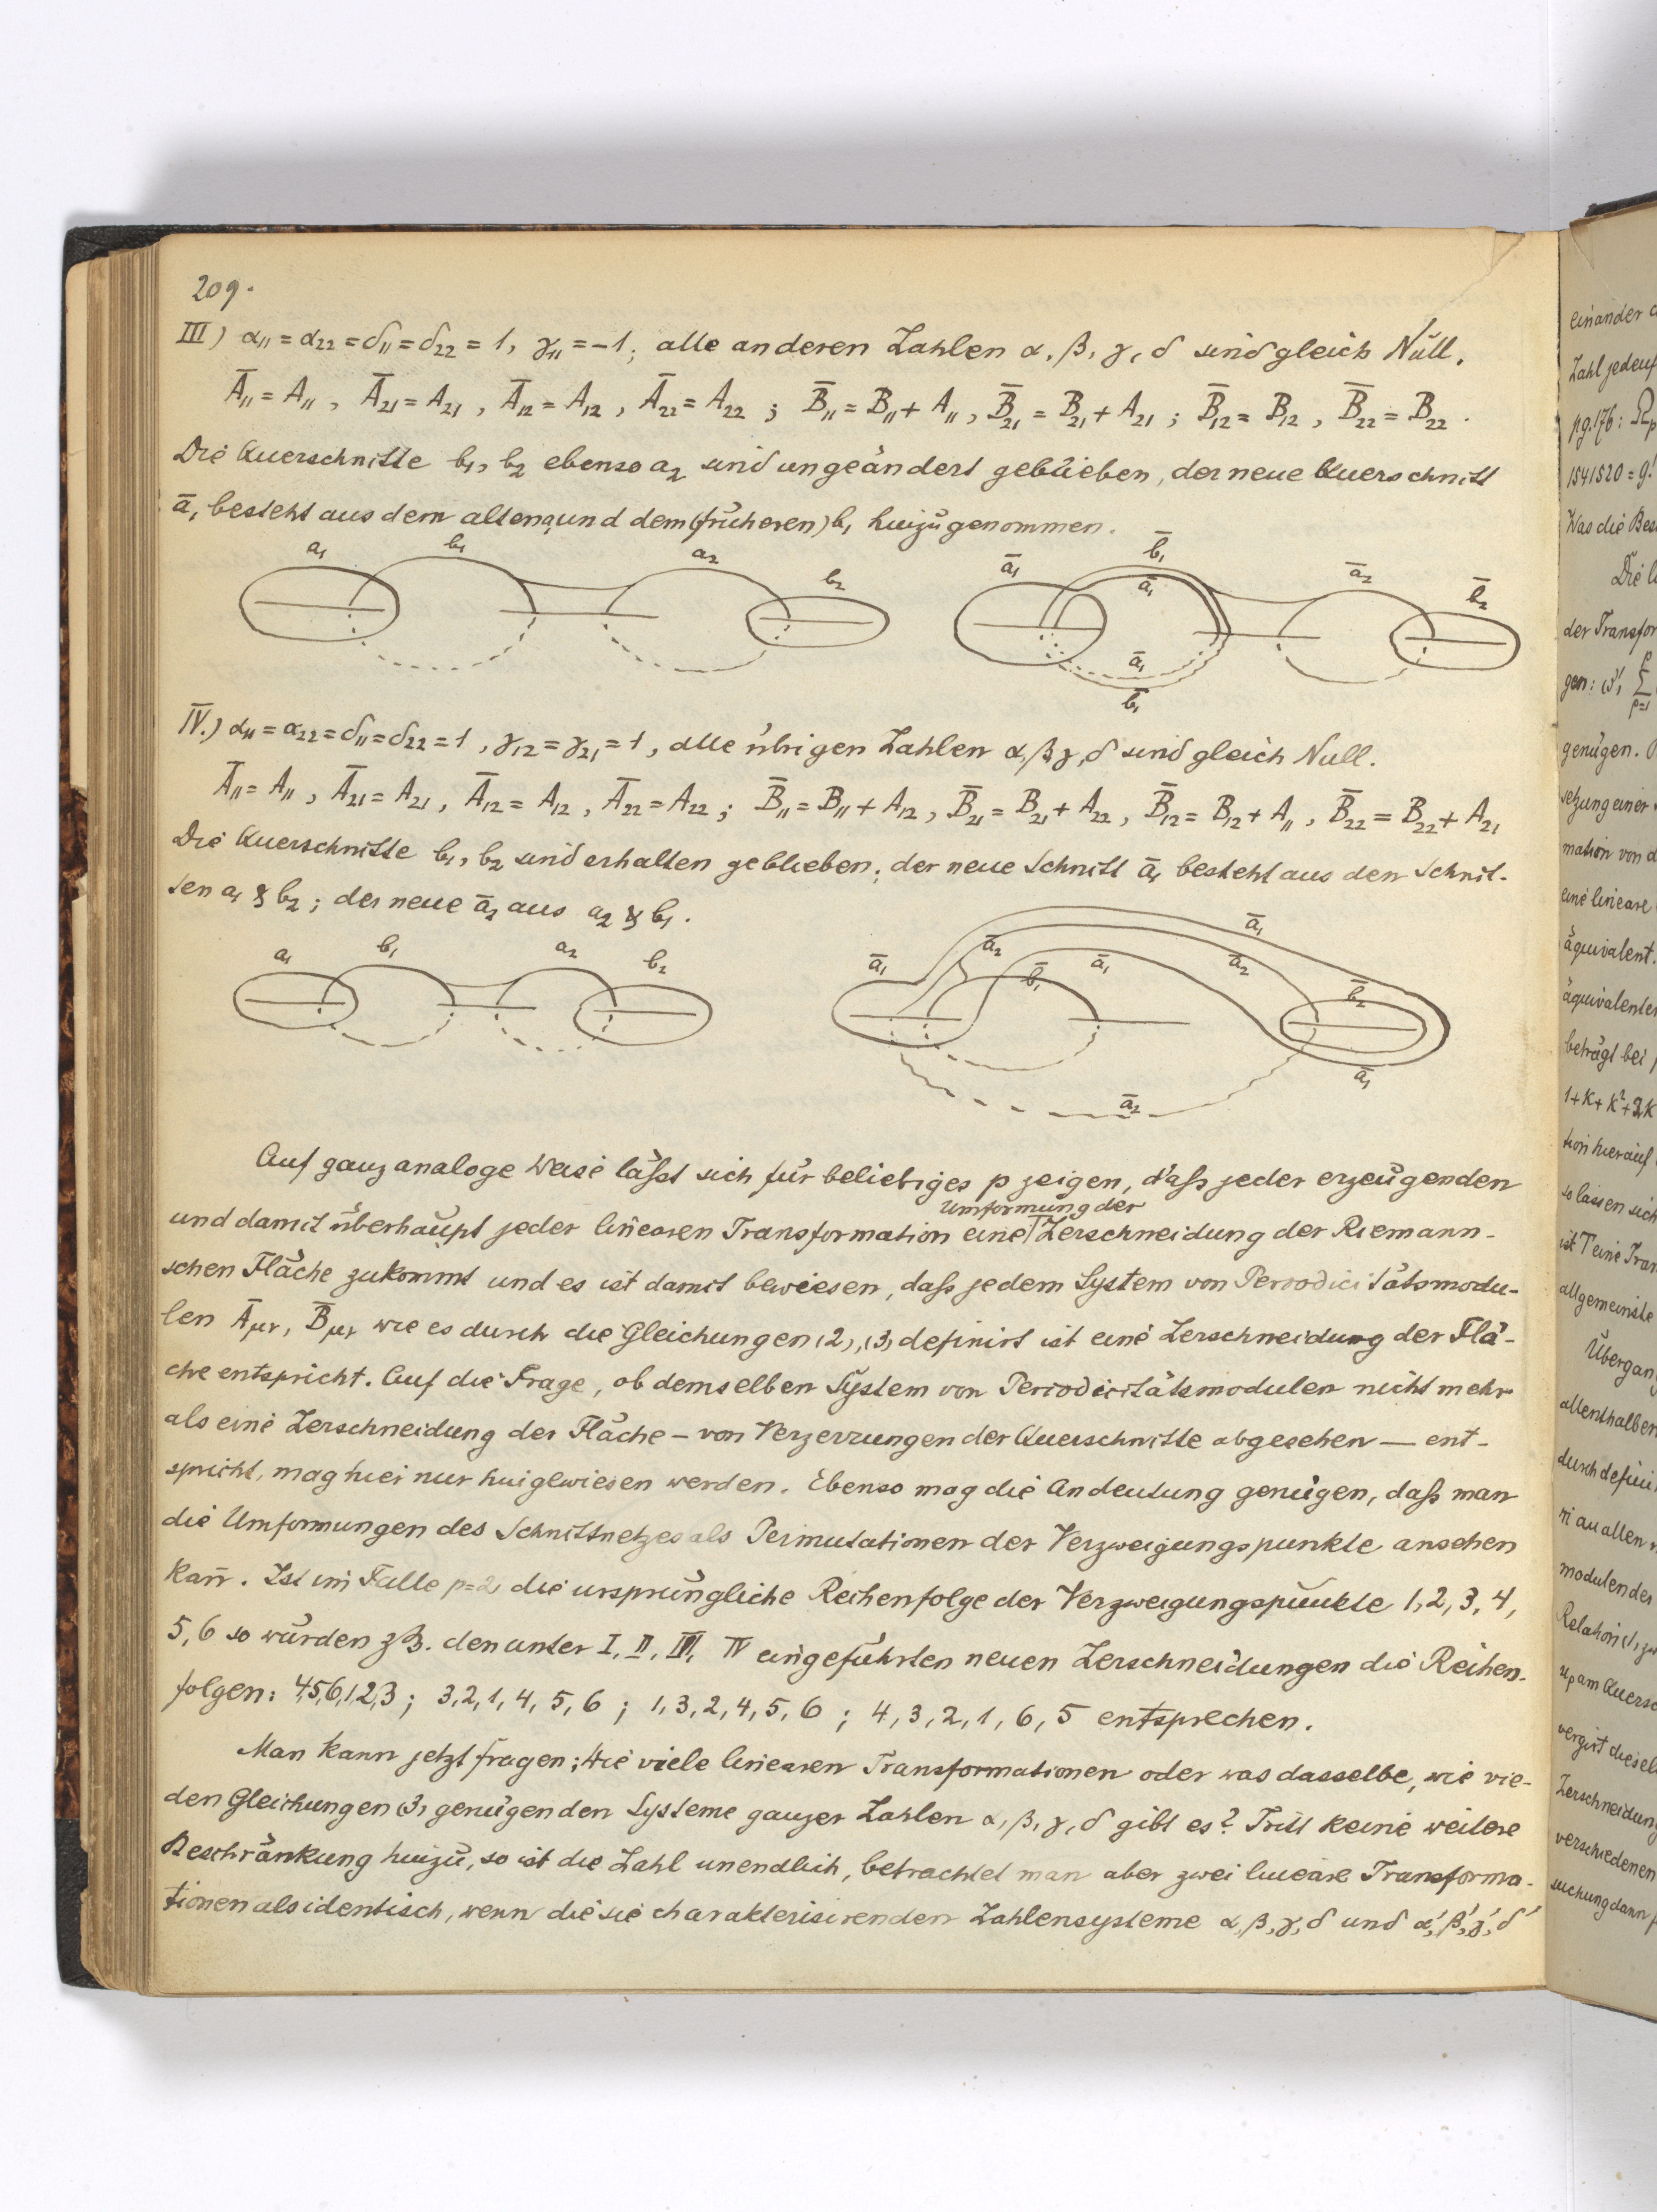 209.
III) α₁₁ = α₂₂ = δ₁₁ = δ₂₂ = 1, γ₁₁ = −1; alle anderen Zahlen α, β, γ, δ sind gleich Null.
Ā₁₁ = A₁₁, Ā₂₁ = A₂₁, Ā₁₂ = A₁₂, Ā₂₂ = A₂₂; B̄₁₁ = B₁₁ + A₁₁, B̄₂₁ = B₂₁ + A₂₁; B̄₁₂ = B₁₂, B̄₂₂ = B₂₂.
Die Querschnitte b₁, b₂ ebenso a₂ sind ungeändert geblieben, der neue Querschnitt
ā₁ besteht aus dem alten a₁ und dem (früheren) b₁ hinzugenommen.
a₁ b₁ a₂ b₂ ā₁ b̄₁ ā₁ ā₂ b̄₂
ā₁
b̄₁
IV.) α₁₁ = α₂₂ = δ₁₁ = δ₂₂ = 1, γ₁₂ = γ₂₁ = 1, alle übrigen Zahlen α, β, γ, δ sind gleich Null.
Ā₁₁ = A₁₁, Ā₂₁ = A₂₁, Ā₁₂ = A₁₂, Ā₂₂ = A₂₂; B̄₁₁ = B₁₁ + A₁₂, B̄₂₁ = B₂₁ + A₂₂, B̄₁₂ = B₁₂ + A₁₁, B̄₂₂ = B₂₂ + A₂₁
Die Querschnitte b₁, b₂ sind erhalten geblieben; der neue Schnitt ā₁ besteht aus den Schnit-
ten a₁ & b₂; der neue ā₂ aus a₂ & b₁.
a₁ b₁ a₂ b₂ ā₁ ā₂ b̄₁ ā₁ ā₂ ā₁ b̄₂
ā₁
ā₂
Auf ganz analoge Weise läßt sich für beliebiges p zeigen, daß jeder erzeugenden
Umformung der
und damit überhaupt jeder linearen Transformation eine Zerschneidung der Riemann-
schen Fläche zukommt und es ist damit bewiesen, daß jedem System von Periodicitätsmodu-
len Āμν, B̄μν wie es durch die Gleichungen (2), (3) definirt ist eine Zerschneidung der Flä-
che entspricht. Auf die Frage, ob demselben System von Periodicitätsmodulen nicht mehr
als eine Zerschneidung der Fläche – von Verzerrungen der Querschnitte abgesehen — ent-
spricht, mag hier nur hingewiesen werden. Ebenso mag die Andeutung genügen, daß man
die Umformungen des Schnittnetzes als Permutationen der Verzweigungspunkte ansehen
kan̄. Ist im Falle p=2 die ursprüngliche Reihenfolge der Verzweigungspunkte 1, 2, 3, 4,
5, 6 so würden z.B. den unter I, II, III, IV eingeführten neuen Zerschneidungen die Reihen-
folgen: 4,5,6,1,2,3; 3, 2, 1, 4, 5, 6; 1, 3, 2, 4, 5, 6; 4, 3, 2, 1, 6, 5 entsprechen.
Man kann jetzt fragen: Wie viele linearen Transformationen oder was dasselbe, wie vie-
den Gleichungen (3) genügenden Systeme ganzer Zahlen α, β, γ, δ gibt es? Tritt keine weitere
Beschränkung hinzu, so ist die Zahl unendlich, betrachtet man aber zwei lineare Transforma-
tionen als identisch, wenn die sie charakterisirenden Zahlensysteme α, β, γ, δ und α', β', γ', δ'
einander
Zahl jedenf
pg. 176:
Was die Bes
Die
der Transfor
gen:
genügen.
setzung einer
mation von d
eine lineare
äquivalent.
äquivalenten
beträgt bei
1+k+k²+
tion hierauf
so lassen sich
ist T eine Tran
allgemeinste
Übergan
allenthalben
durch defini
modulen des
Relation
am Quersc
Zerschneidung
verschiedenen
suchung dann